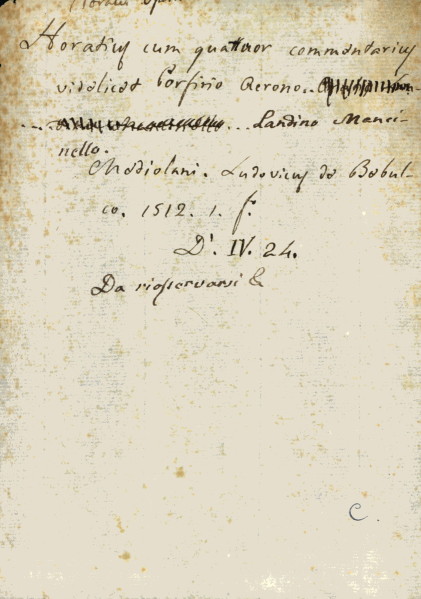 Horatius cum quattuor commentarius
videlicet Porfirio Acrono..
... Landino Manci-
nello.
Mediolani. Ludovicus de Bebul-
co. 1512. 1. f.
D'. IV. 24.
Da riosservarsi &
C.